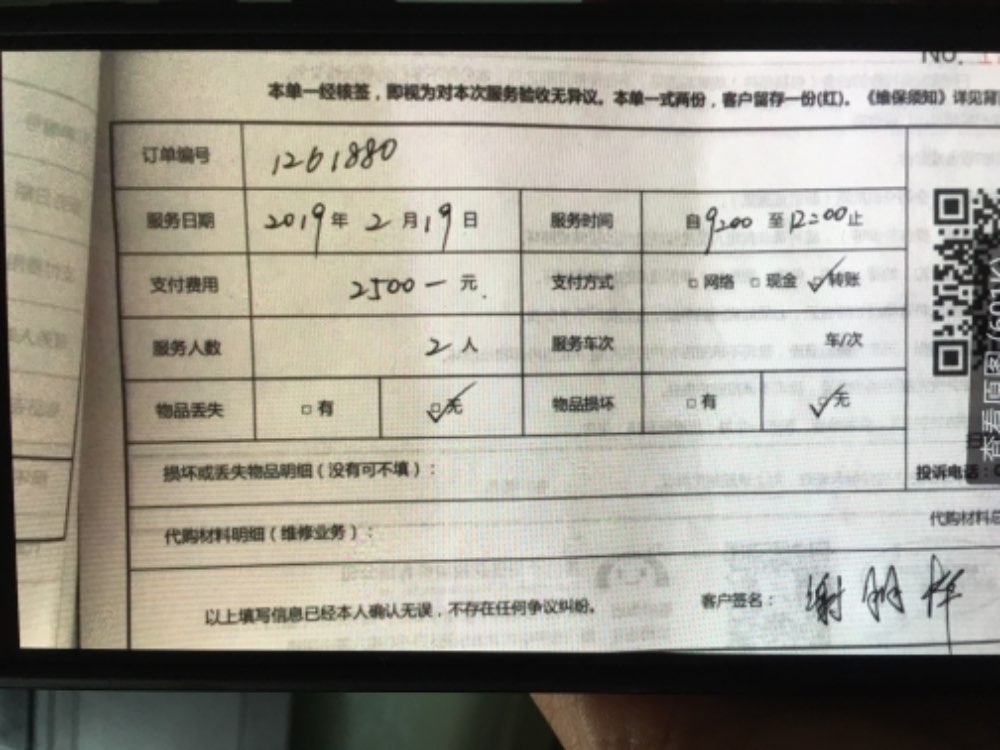 No. 1
本单一经核签，即视为对本次服务验收无异议。本单一式两份，客户留存一份(红)。《维保须知》详见背
订单编号 1261880
服务日期 2019年 2月19日 服务时间 自9:00至12:00止
支付费用 2500一元. 支付方式 □网络 □现金 ☑转账
服务人数 2人 服务车次 车/次
物品丢失 □有 ☑无 物品损坏 □有 ☑无
查看原图(60
损坏或丢失物品明细（没有可不填）：
投诉电话：
代购材料明细（维修业务）：
代购材料总
以上填写信息已经本人确认无误，不存在任何争议纠纷。 客户签名：谢